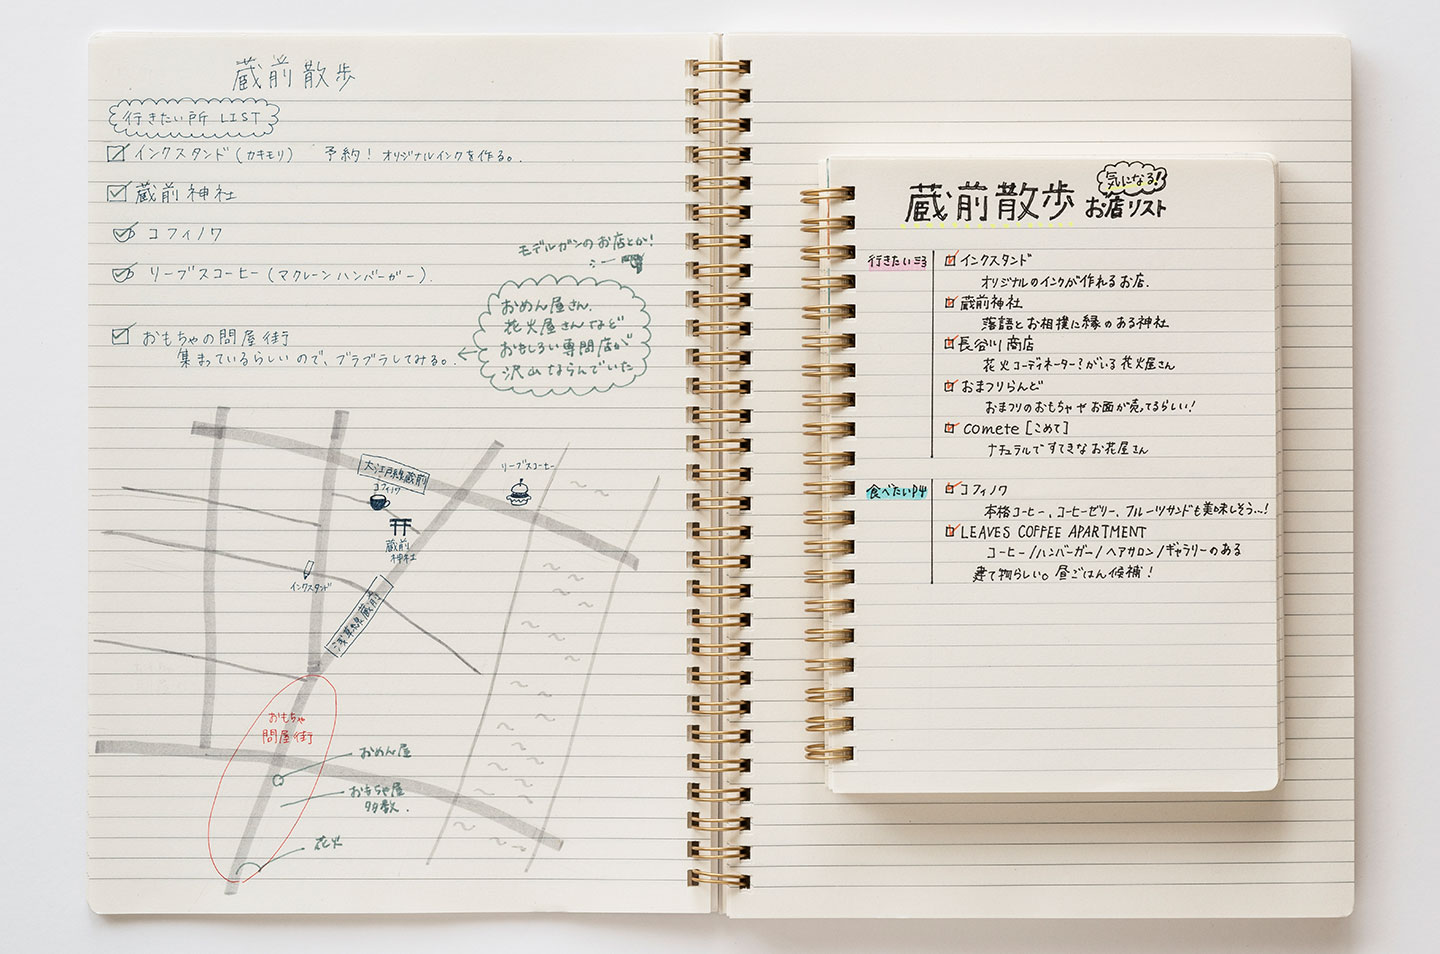 蔵前散歩
行きたい所 LIST
インクスタンド(カキモリ) 予約! オリジナルインクを作る。
蔵前神社
コフィノワ
リーブスコーヒー(マクレーンハンバーガー)
おもちゃの問屋街
集まっているらしいので、ブラブラしてみる。
モデルガンのお店とか!
おめん屋さん、
花火屋さんなど
おもしろい専門店が
沢山ならんでいた
大江戸線蔵前
コフィノワ
リーブスコーヒー
蔵前
神社
インクスタンド
浅草線蔵前
おもちゃ
問屋街
おめん屋
おもちゃ屋
多数.
花火
蔵前散歩 お店リスト
気になる!
行きたいミョ
インクスタンド
オリジナルのインクが作れるお店.
蔵前神社
落語とお相撲に縁のある神社
長谷川商店
花火コーディネーター?がいる花火屋さん
おまつりらんど
おまつりのおもちゃやお面が売ってるらしい!
comete [こめて]
ナチュラルですてきなお花屋さん
食べたい
コフィノワ
本格コーヒー、コーヒーゼリー、フルーツサンドも美味しそう...!
LEAVES COFFEE APARTMENT
コーヒー/ハンバーガー/ヘアサロン/ギャラリーのある
建て物らしい。昼ごはん候補!